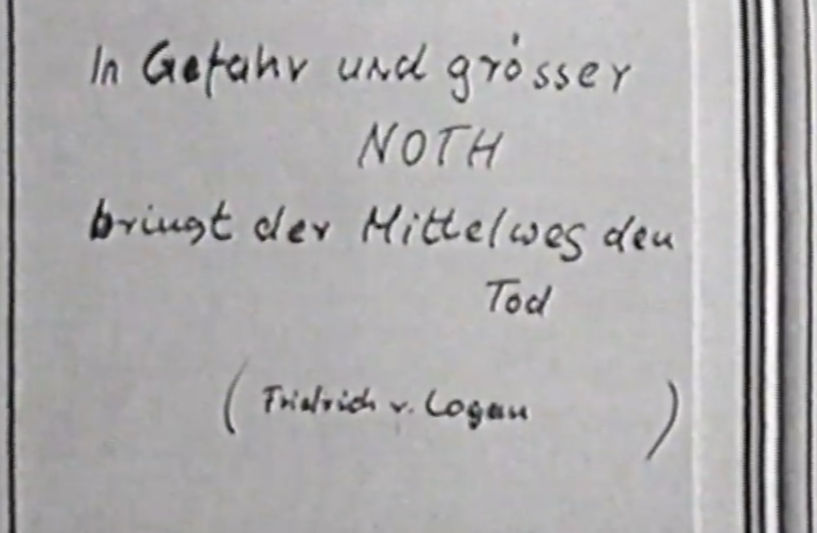 In Gefahr und grösser
NOTH
bringt der Mittelweg den
Tod
(Friedrich v. Logau)